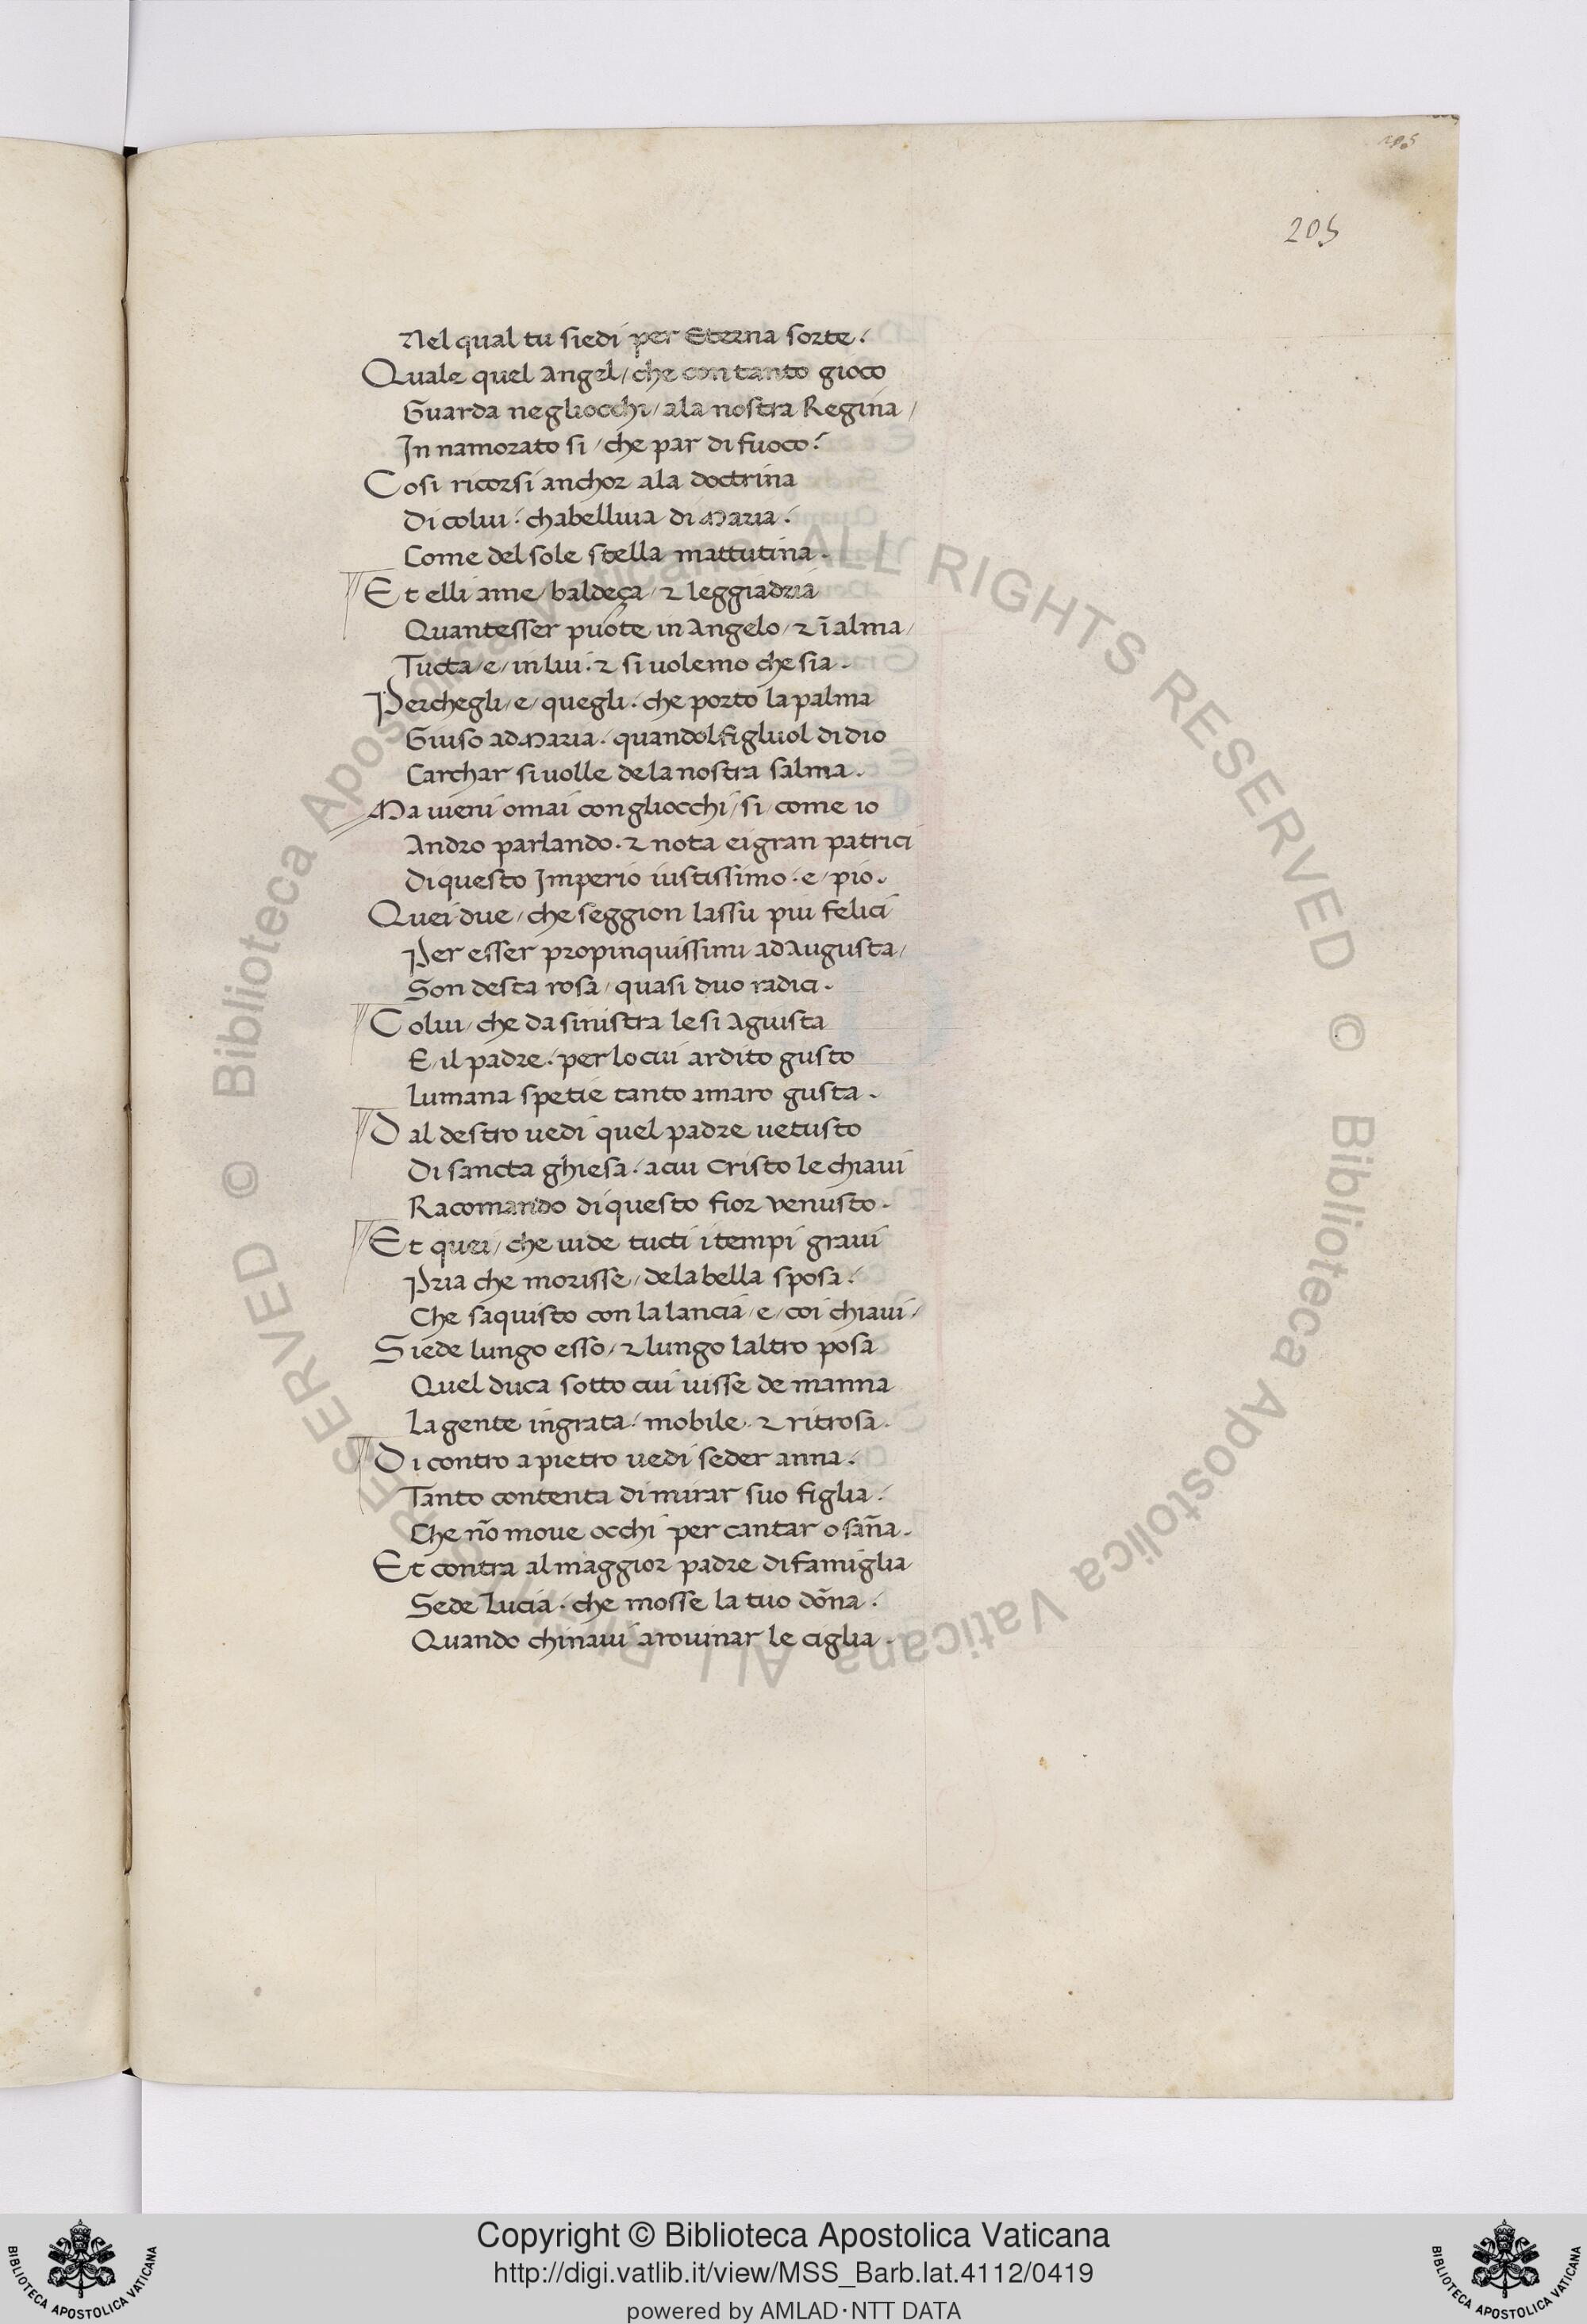 205
Nel qual tu siedi per Eterna sorte:
Quale quel Angel/ che con tanto gioco
Guarda negliocchi/ ala nostra Regina/
Jn namorato si/ che par di fuoco:
Cosi ricorsi anchor ala doctrina
Di colui: chabelliua di Maria:
Come del sole stella mattutina.
Et elli ame/ baldeça/ ⁊ leggiadria
Quantesser puote in Angelo/ ⁊ ī alma/
Tucta/ e/ in lui: ⁊ si uolemo che sia.
Perchegli/ e/ quegli: che porto la palma
Giuso ad Maria: quandol figluol di dio
Carchar si uolle de la nostra salma.
Ma uieni omai con gliocchi/ si/ come io
Andro parlando. ⁊ nota ei gran patrici
Di questo Jmperio iustissimo: e/ pio.
Quei due/ che seggion lassu piu felici
Per esser propinquissimi ad Augusta/
Son desta rosa/ quasi duo radici.
Colui/ che da sinistra le si Agiusta
E/ il padre: per lo cui ardito gusto
Lumana spetie tanto amaro gusta.
Dal destro uedi quel padre uetusto
Di sancta ghiesa: a cui Cristo le chiaui
Racomando di questo fior venusto.
Et quei/ che uide tucti i tempi graui
Pria che morisse/ de la bella sposa:
Che saquisto con la lancia/ e/ coi chiaui/
Siede lungo esso/ ⁊ lungo laltro posa
Quel duca sotto cui uisse de manna
La gente ingrata: mobile. ⁊ ritrosa.
Di contro a pietro uedi seder anna:
Tanto contenta di mirar suo figlia:
Che nō moue occhi per cantar o sāna.
Et contra al maggior padre di famiglia
Sede Lucia: che mosse la tuo dōna:
Quando chinaui arouinar le ciglia.
© Biblioteca Apostolica Vaticana ALL RIGHTS RESERVED © Biblioteca Apostolica Vaticana ALL RIGHTS RESERVED
Copyright © Biblioteca Apostolica Vaticana
http://digi.vatlib.it/view/MSS_Barb.lat.4112/0419
powered by AMLAD·NTT DATA
BIBLIOTECA APOSTOLICA VATICANA
BIBLIOTECA APOSTOLICA VATICANA